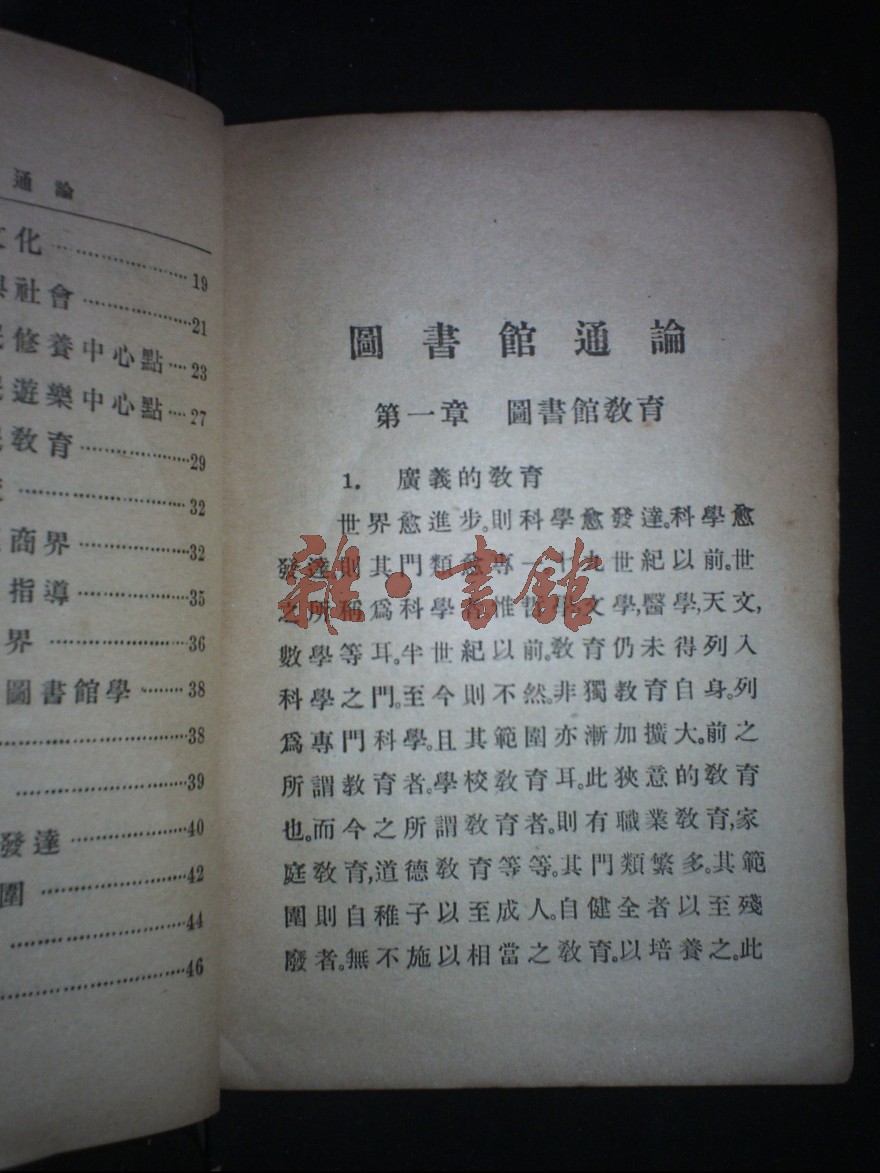 通論
化 19
社會 21
修養中心點 23
遊樂中心點 27
教育 29
32
商界 32
指導 35
界 36
圖書館學 38
38
39
發達 40
圍 42
44
46
圖書館通論
第一章 圖書館教育
1. 廣義的教育
世界愈進步。則科學愈發達。科學愈
發達則其門類愈專一十九世紀以前。世
之所稱爲科學者惟哲學,文學,醫學,天文,
數學等耳。半世紀以前。教育仍未得列入
科學之門。至今則不然。非獨教育自身。列
爲專門科學。且其範圍亦漸加擴大。前之
所謂教育者。學校教育耳。此狹意的教育
也。而今之所謂教育者。則有職業教育,家
庭教育,道德教育等等。其門類繁多。其範
圍則自稚子以至成人。自健全者以至殘
廢者。無不施以相當之教育。以培養之。此
雜·書館